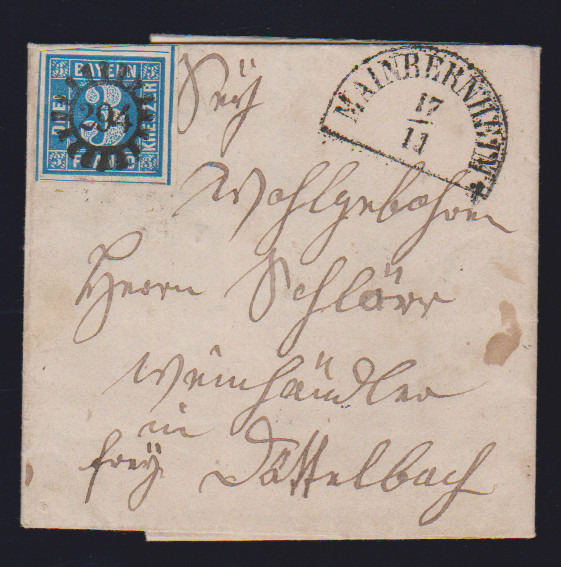 BAYERN
DREI
KREUZER
FRANCO
294
MAINBERNHEIM
17
11
Wohlgebohren
Herrn Schlörr
Weinhändler
in
frey Dettelbach